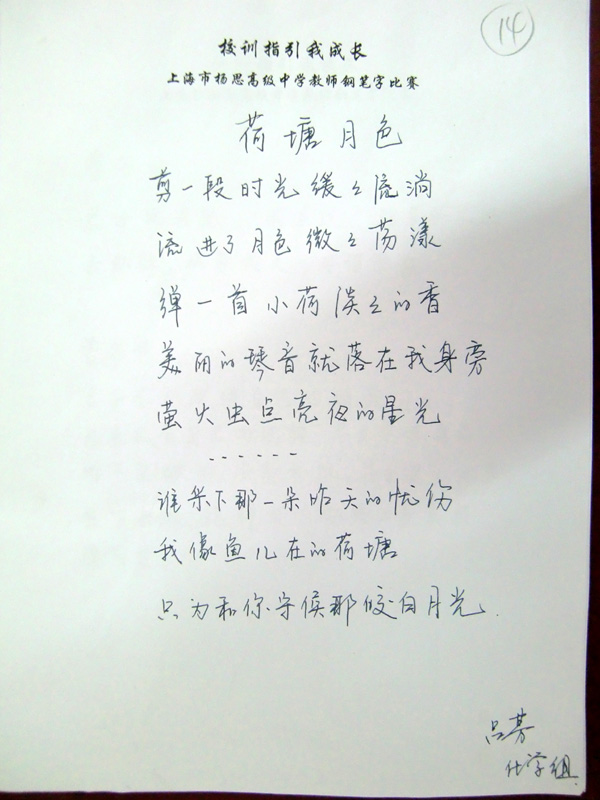 14
校训指引我成长
上海市杨思高级中学教师钢笔字比赛
荷塘月色
剪一段时光缓々流淌
流进了月色微々荡漾
弹一首小荷淡々的香
美丽的琴音就落在我身旁
萤火虫点亮夜的星光
······
谁采下那一朵昨天的忧伤
我像鱼儿在的荷塘
只为和你守候那皎白月光.
吕芳
化学组